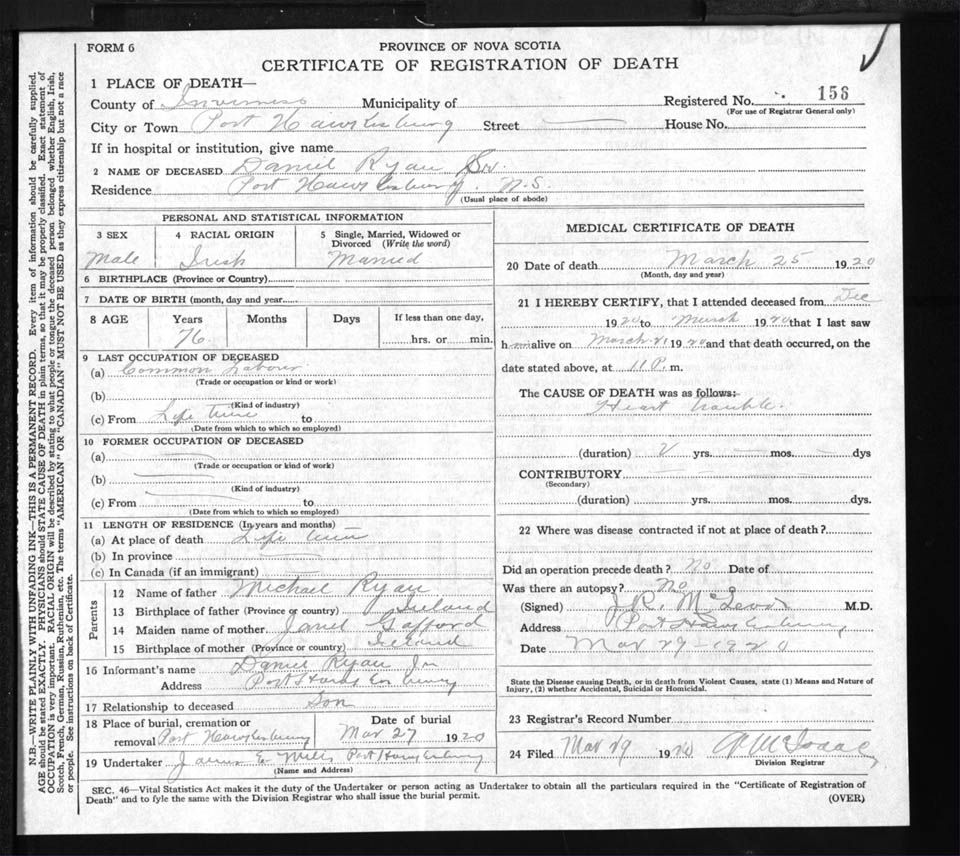 FORM 6
PROVINCE OF NOVA SCOTIA
CERTIFICATE OF REGISTRATION OF DEATH
1 PLACE OF DEATH—
County of Inverness Municipality of Registered No. 156
(For use of Registrar General only)
City or Town Port Hawkesbury Street — House No.
If in hospital or institution, give name
2 NAME OF DECEASED Daniel Ryan Sr.
Residence Port Hawkesbury. N.S.
(Usual place of abode)
PERSONAL AND STATISTICAL INFORMATION
3 SEX 4 RACIAL ORIGIN 5 Single, Married, Widowed or Divorced (Write the word)
Male Irish Married
6 BIRTHPLACE (Province or Country)
7 DATE OF BIRTH (month, day and year
8 AGE Years Months Days If less than one day,
76 hrs. or min.
9 LAST OCCUPATION OF DECEASED
(a) Common Labour
(Trade or occupation or kind or work)
(b)
(Kind of industry)
(c) From Life time to
(Date from which to which so employed)
10 FORMER OCCUPATION OF DECEASED
(a) —
(Trade or occupation or kind of work)
(b) —
(Kind of industry)
(c) From — to
(Date from which to which so employed)
11 LENGTH OF RESIDENCE (In years and months)
(a) At place of death Life time
(b) In province —
(c) In Canada (if an immigrant) —
Parents
12 Name of father Michael Ryan
13 Birthplace of father (Province or country) Ireland
14 Maiden name of mother Janet Gafford
15 Birthplace of mother (Province or country) Ireland
16 Informant's name Daniel Ryan Jr
Address Port Hawkesbury
17 Relationship to deceased Son
18 Place of burial, cremation or Date of burial
removal Port Hawkesbury Mar 27 1920
19 Undertaker James E Mills Port Hawkesbury
(Name and Address)
MEDICAL CERTIFICATE OF DEATH
20 Date of death March 25 1920
(Month, day and year)
21 I HEREBY CERTIFY, that I attended deceased from Dec
1920 to March 1920 that I last saw
h alive on March 21 1920 and that death occurred, on the
date stated above, at 11 P. m.
The CAUSE OF DEATH was as follows:-
Heart trouble.
(duration) yrs. — mos. — dys
CONTRIBUTORY
(Secondary)
(duration) yrs. mos. dys.
22 Where was disease contracted if not at place of death?
Did an operation precede death? No Date of
Was there an autopsy? No
(Signed) J.R. McLeod M.D.
Address Port Hawkesbury
Date Mar 29-1920
State the Disease causing Death, or in death from Violent Causes, state (1) Means and Nature of
Injury, (2) whether Accidental, Suicidal or Homicidal.
23 Registrar's Record Number
24 Filed Mar 29 1920 McIsaac
Division Registrar
SEC. 46—Vital Statistics Act makes it the duty of the Undertaker or person acting as Undertaker to obtain all the particulars required in the "Certificate of Registration of
Death" and to fyle the same with the Division Registrar who shall issue the burial permit.
(OVER)
N.B.—WRITE PLAINLY WITH UNFADING INK—THIS IS A PERMANENT RECORD. Every item of information should be carefully supplied.
AGE should be stated EXACTLY. PHYSICIANS should STATE CAUSE OF DEATH in plain terms, so that it may be properly classified. Exact statement of
OCCUPATION is very important. RACIAL ORIGIN will be described by stating to what people or tongue the deceased person belonged whether English, Irish,
Scotch, French, German, Russian, Ruthenian, etc. The terms "AMERICAN" OR "CANADIAN" MUST NOT BE USED as they express citizenship but not a race
or people. See instructions on back of Certificate.